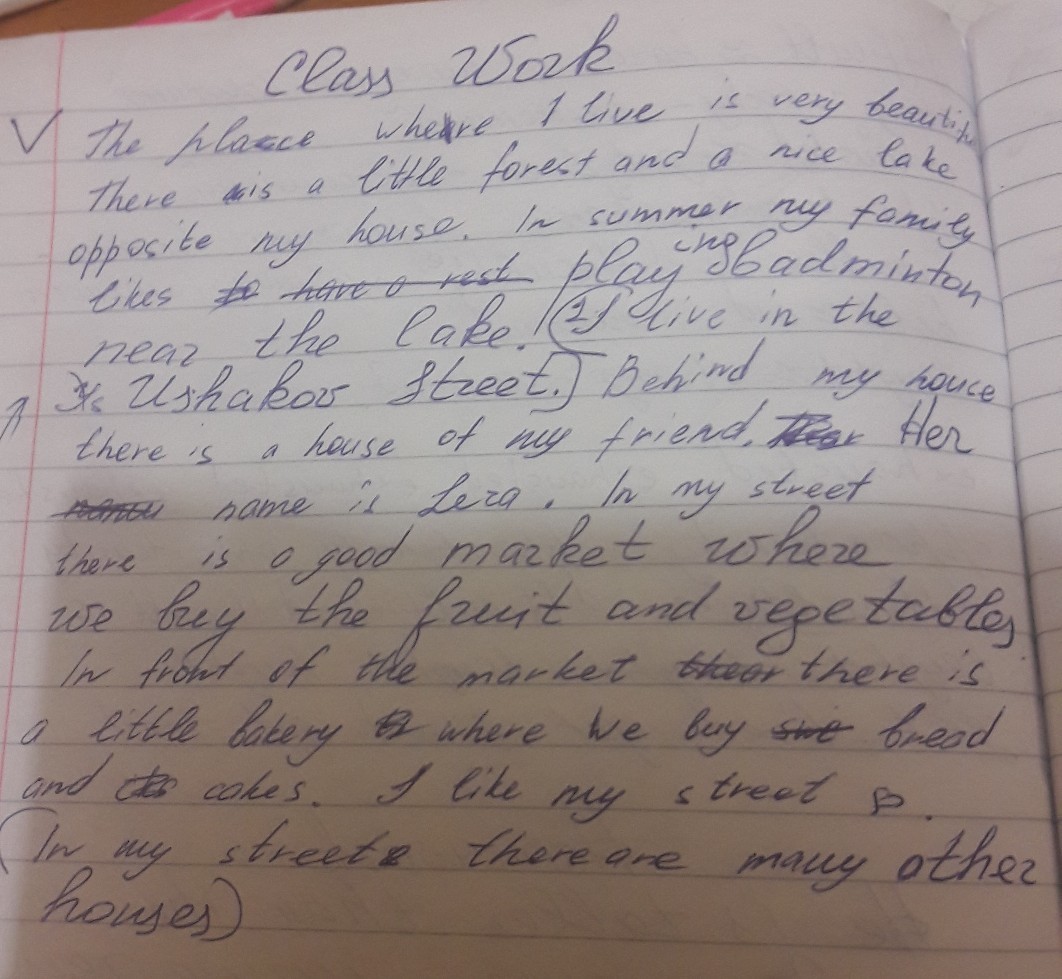 Class Work
The place where I live is very beautiful
There is a little forest and a nice lake
opposite my house. In summer my family
likes to have a rest playing badminton
near the lake. I live in the
Ushakov Street. Behind my house
there is a house of my friend. Her
name is Lera. In my street
there is a good market where
we buy the fruit and vegetables
In front of the market there is
a little bakery where we buy bread
and cakes. I like my street
(In my street there are many other
houses)